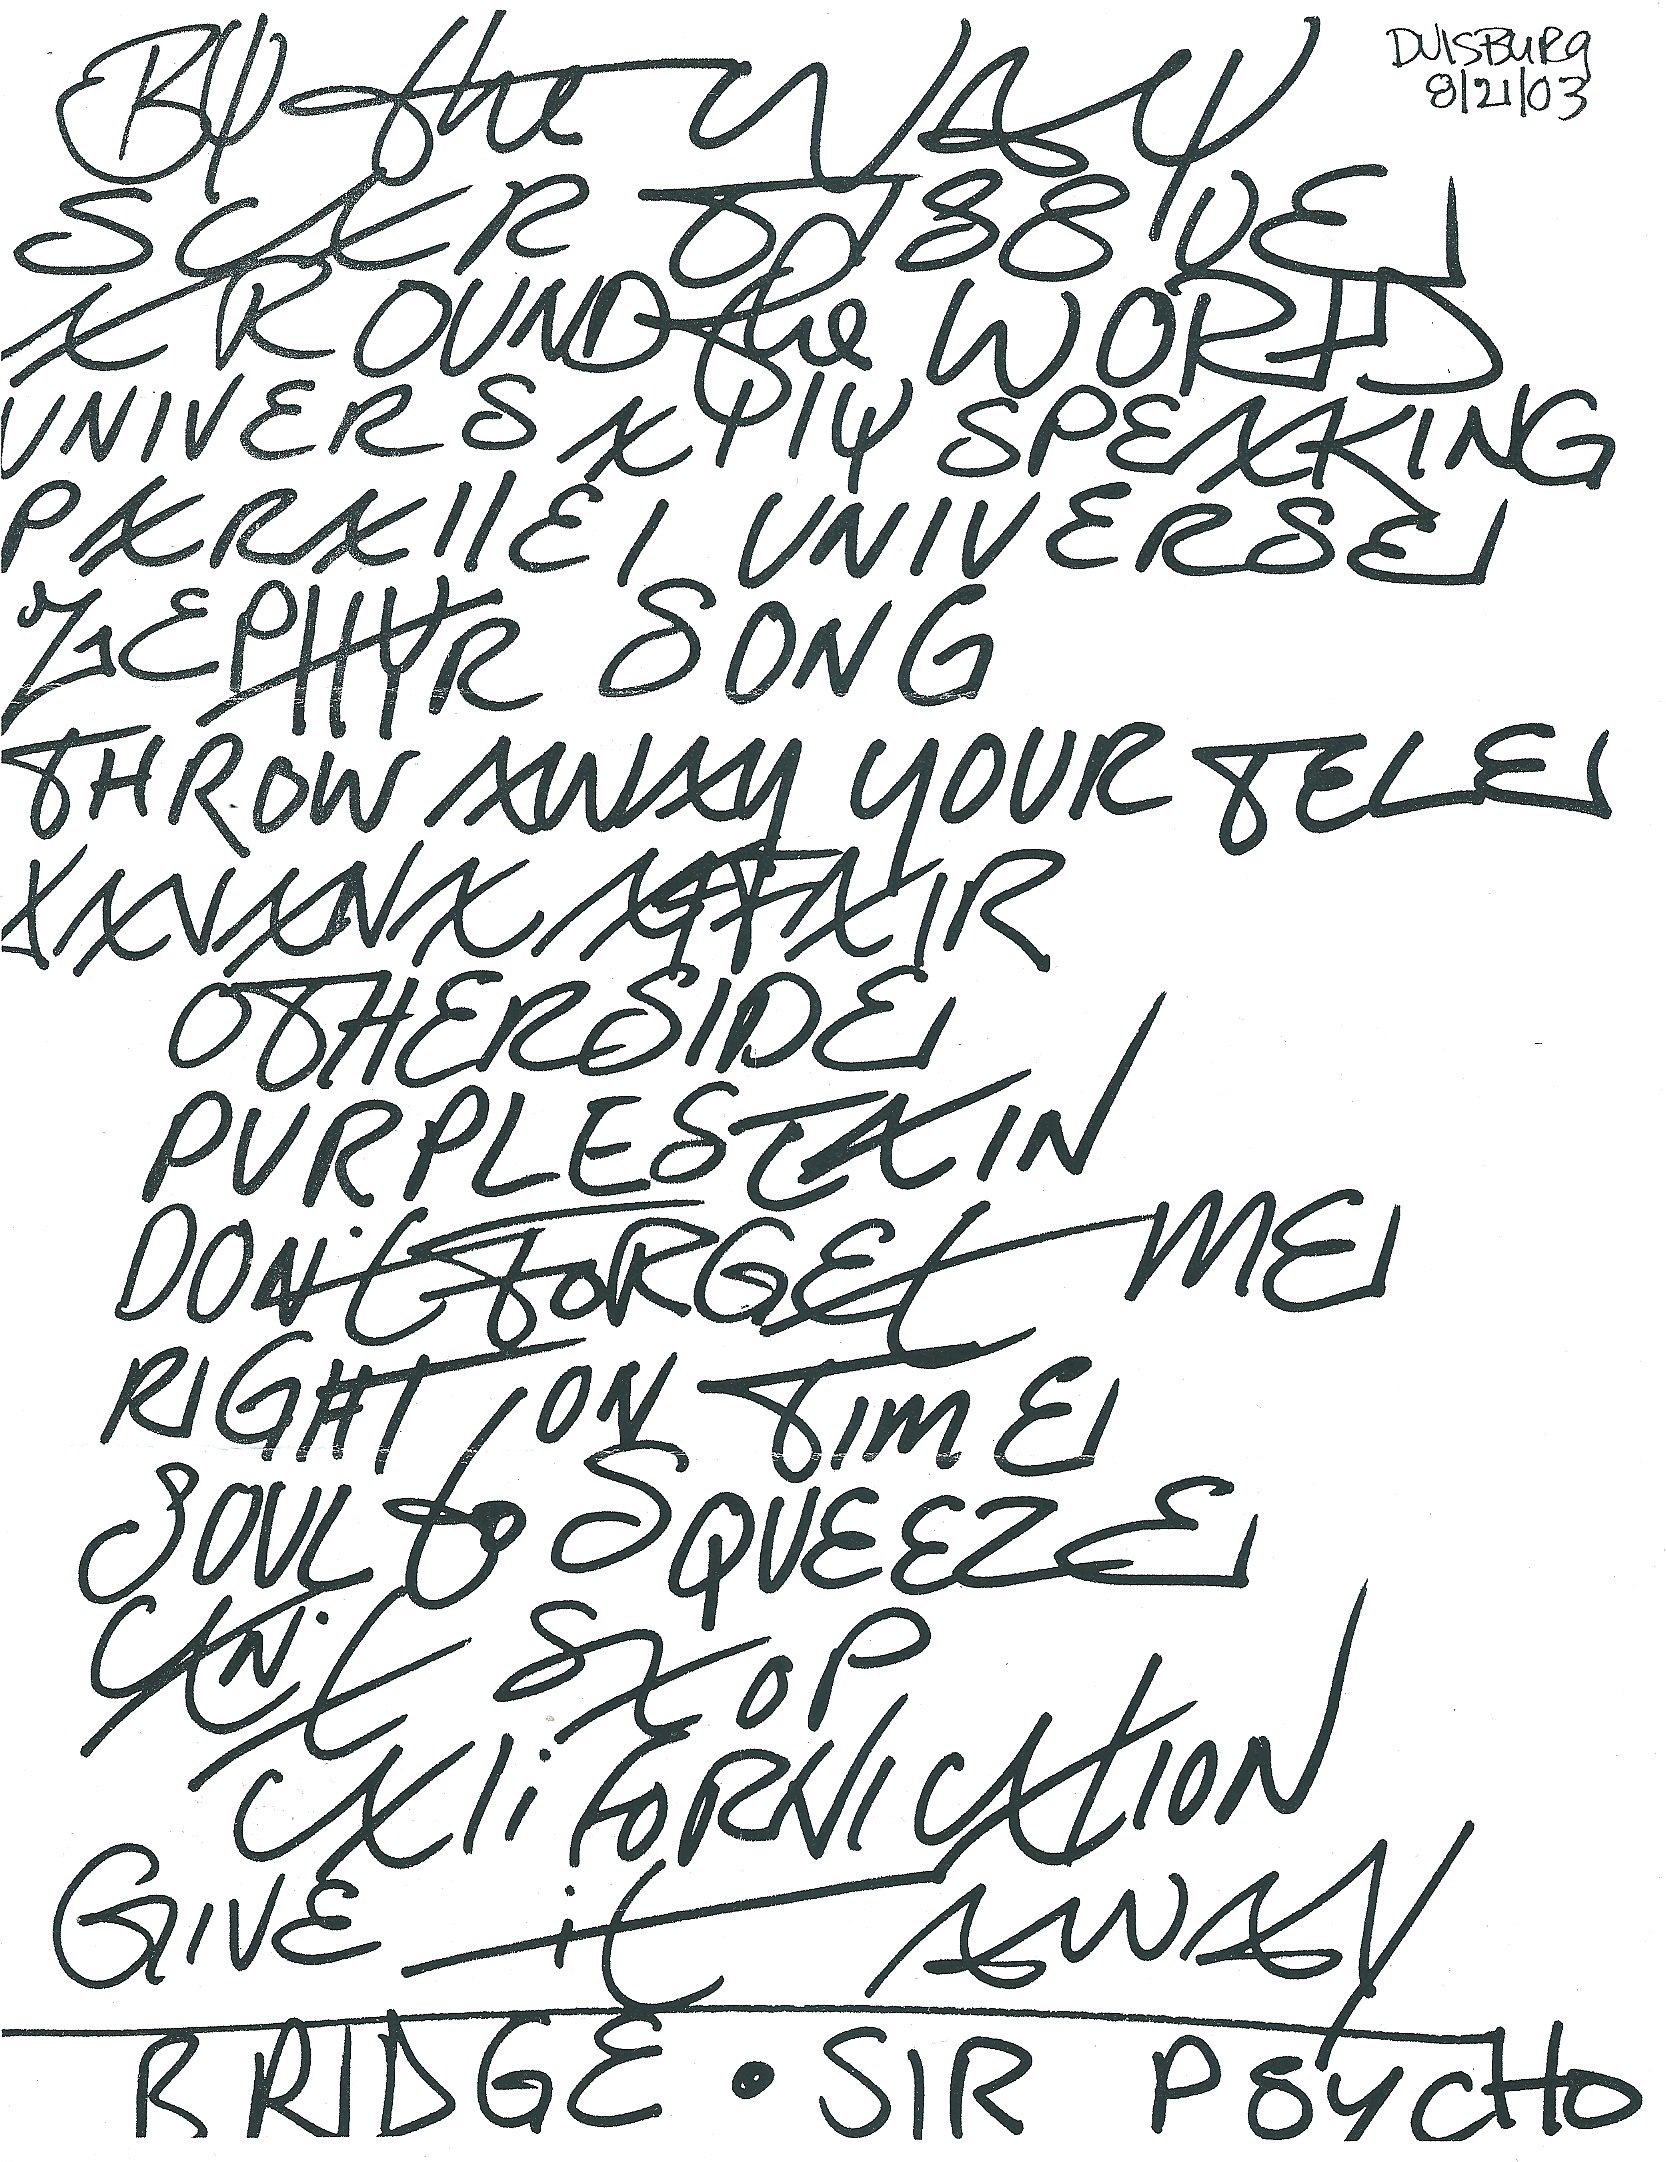 DUISBURG
8/21/03
By the WAY
SCAR TISSUE
AROUND the WORLD
UNIVERSAlly SPEAKING
PARAllEl UNIVERSE
ZEPHYR SONG
THROW AWAY YOUR TELE
HAVANA AFFAIR
OTHERSIDE
PURPLE STAIN
DON't FORGEt ME
RIGHT ON TIME
SOUL to SQUEEZE
CAN't STOP
CAliFORNICATION
GIVE it AWAY
BRIDGE • SIR PSYCHO